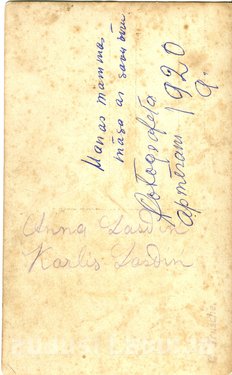 Manas mammas
māsa ar savu vīru
Fotografēta
apmēram 1920
g.
Anna Lasdin
Karlis Lasdin